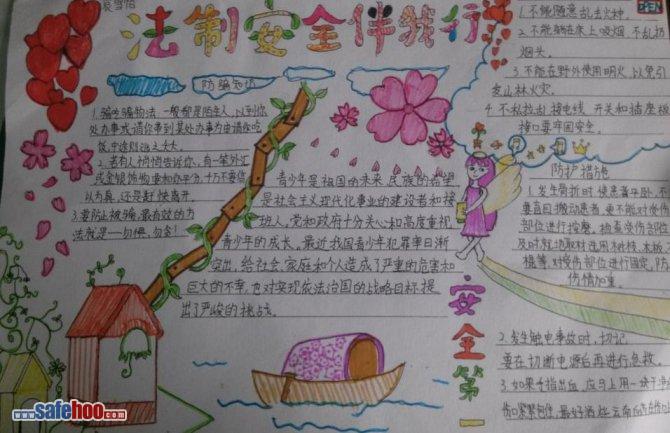 袁雪怡
法制安全伴我行
防骗知识
1.骗子骗钓法一般都是陌生人,以到你
处办事或请你带到某处办事为由请你吃
饭,中途则
2.若有人悄悄告诉你,有一笔外汇
或金银饰物要和你平分,千万不要信
以为真,还是赶快离开。
3.要防止被骗,最有效的方
法就是一句便,勿贪!
青少年是祖国的未来,民族的希望
是社会主义现代化事业的建设者和接
班人,党和政府十分关心和高度重视
青少年的成长。最近我国青少年犯罪率日渐
突出,给社会、家庭和个人造成了严重的危害和
巨大的不幸,也对实现依法治国的战略目标提
出了严峻的挑战。
1.不能随意乱丢火种。
2.不能躺在床上吸烟,不乱扔
烟头。
3.不能在野外使用明火,以免引
发山林火灾。
4.不私拉乱接电线,开关和插座接
接口要牢固安全。
防护措施
1.发生骨折时,使患者平卧,不
要盲目搬动患者,更不能对受伤
部位进行按摩。检查受伤部位
及时就地取材选用木板、木棍
棍等,对受伤部位进行固定,防
伤情加重。
2.发生触电事故时,切记
要在切断电源后再进行急救
3.如果手指出血,应马上用一块干净
伤口紧紧包住,最好洒些云南白药在伤口
安全第一
www.safehoo.com